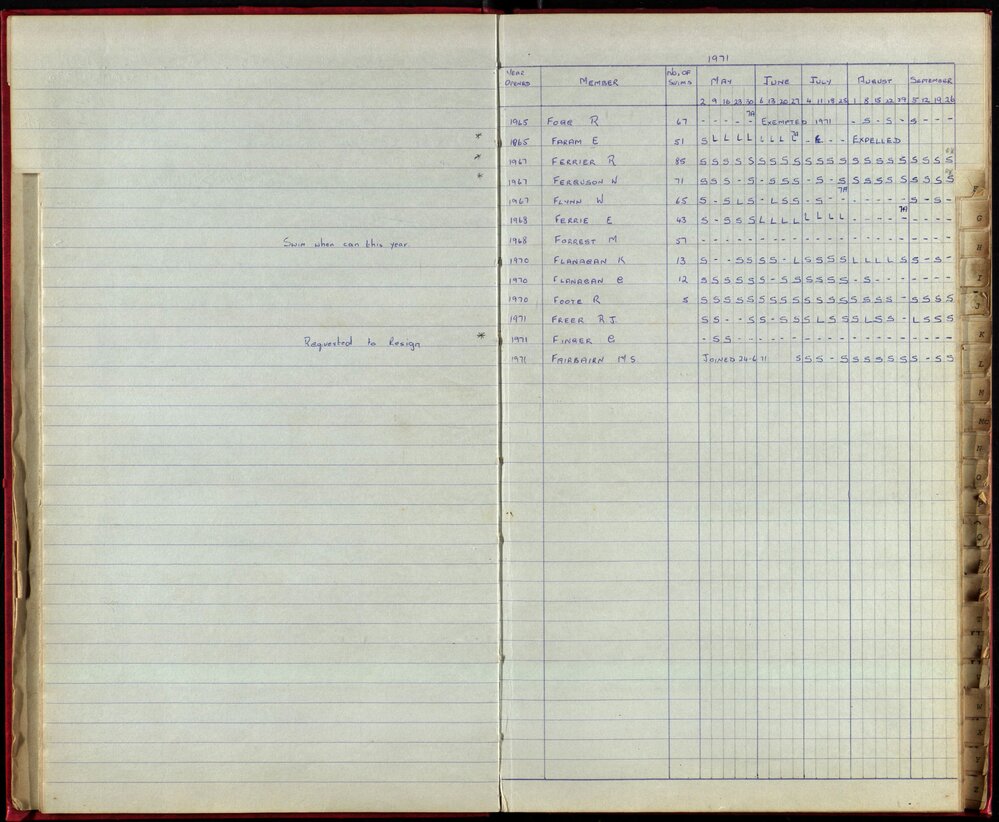 Swim when can this year.
Requested to Resign *
*
*
*
1971
YEAR OPENED MEMBER NO. OF SWIMS MAY JUNE JULY AUGUST SEPTEMBER
2 9 16 23 30 6 13 20 27 4 11 18 25 1 8 15 22 29 5 12 19 26
1965 FOGG R 67 - - - - - 7A EXEMPTED 1971 - S - S - S - - -
1965 FARAM E 51 S L L L L L L L L 7A - L - - EXPELLED
1967 FERRIER R 85 S S S S S S S S S S S S S S S S S S S S S S
1967 FERGUSON W 71 S S S - S - S S S - S - S S S S S S S S S S
1967 FLYNN W 65 S - S L S - L S S - S - 7A - - - - - S - S -
1968 FERRIE E 43 S - S S S L L L L L L L L - - - - 7A - - - -
1968 FORREST M 57 - - - - - - - - - - - - - - - - - - - - - -
1970 FLANAGAN K 13 S - - S S S S - L S S S S L L L L S S - S -
1970 FLANAGAN C 12 S S S S S S - S S S S S S - S - - - - - - -
1970 FOOTE R 5 S S S S S S S S S S S S S S S S S - S S S S
1971 FREER R.J. S S - - S S - S S S L S S S L S S - L S S S
1971 FINGER C - S S - - - - - - - - - - - - - - - - - - -
1971 FAIRBAIRN M S JOINED 24-6-71 S S S - S S S S S S S - S S
F
G
H
I
J
K
L
M
Mc
N
O
P
W
X
Y
Z